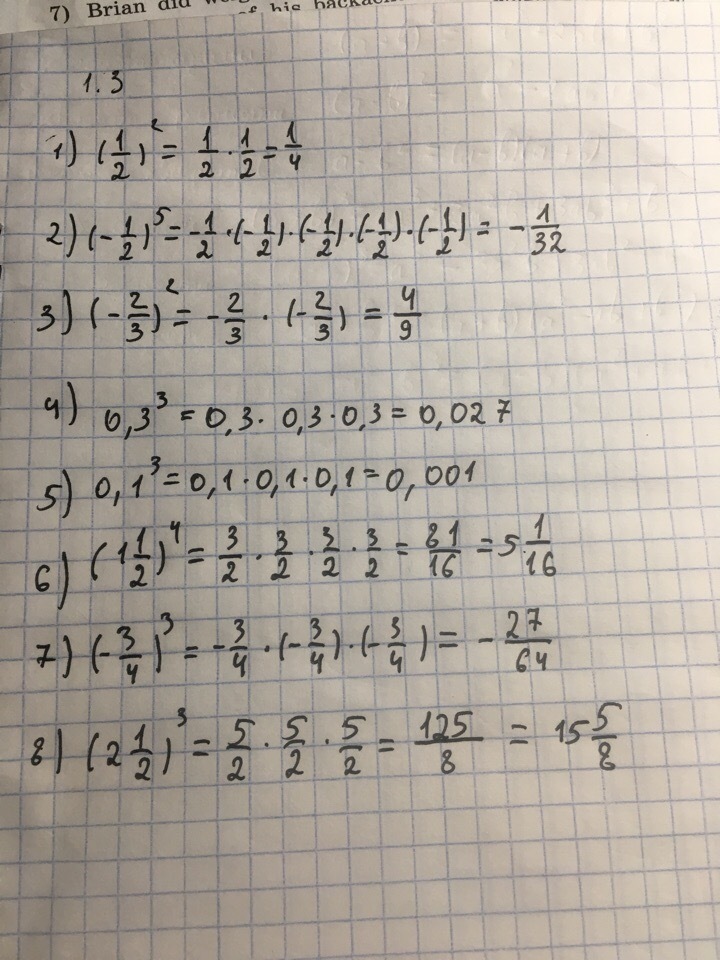 7) Brian did
of his backac
1.3
1) (1/2)² = 1/2 · 1/2 = 1/4
2) (-1/2)⁵ = -1/2 · (-1/2) · (-1/2) · (-1/2) · (-1/2) = -1/32
3) (-2/3)² = -2/3 · (-2/3) = 4/9
4) 0,3³ = 0,3 · 0,3 · 0,3 = 0,027
5) 0,1³ = 0,1 · 0,1 · 0,1 = 0,001
6) (1 1/2)⁴ = 3/2 · 3/2 · 3/2 · 3/2 = 81/16 = 5 1/16
7) (-3/4)³ = -3/4 · (-3/4) · (-3/4) = -27/64
8) (2 1/2)³ = 5/2 · 5/2 · 5/2 = 125/8 = 15 5/8